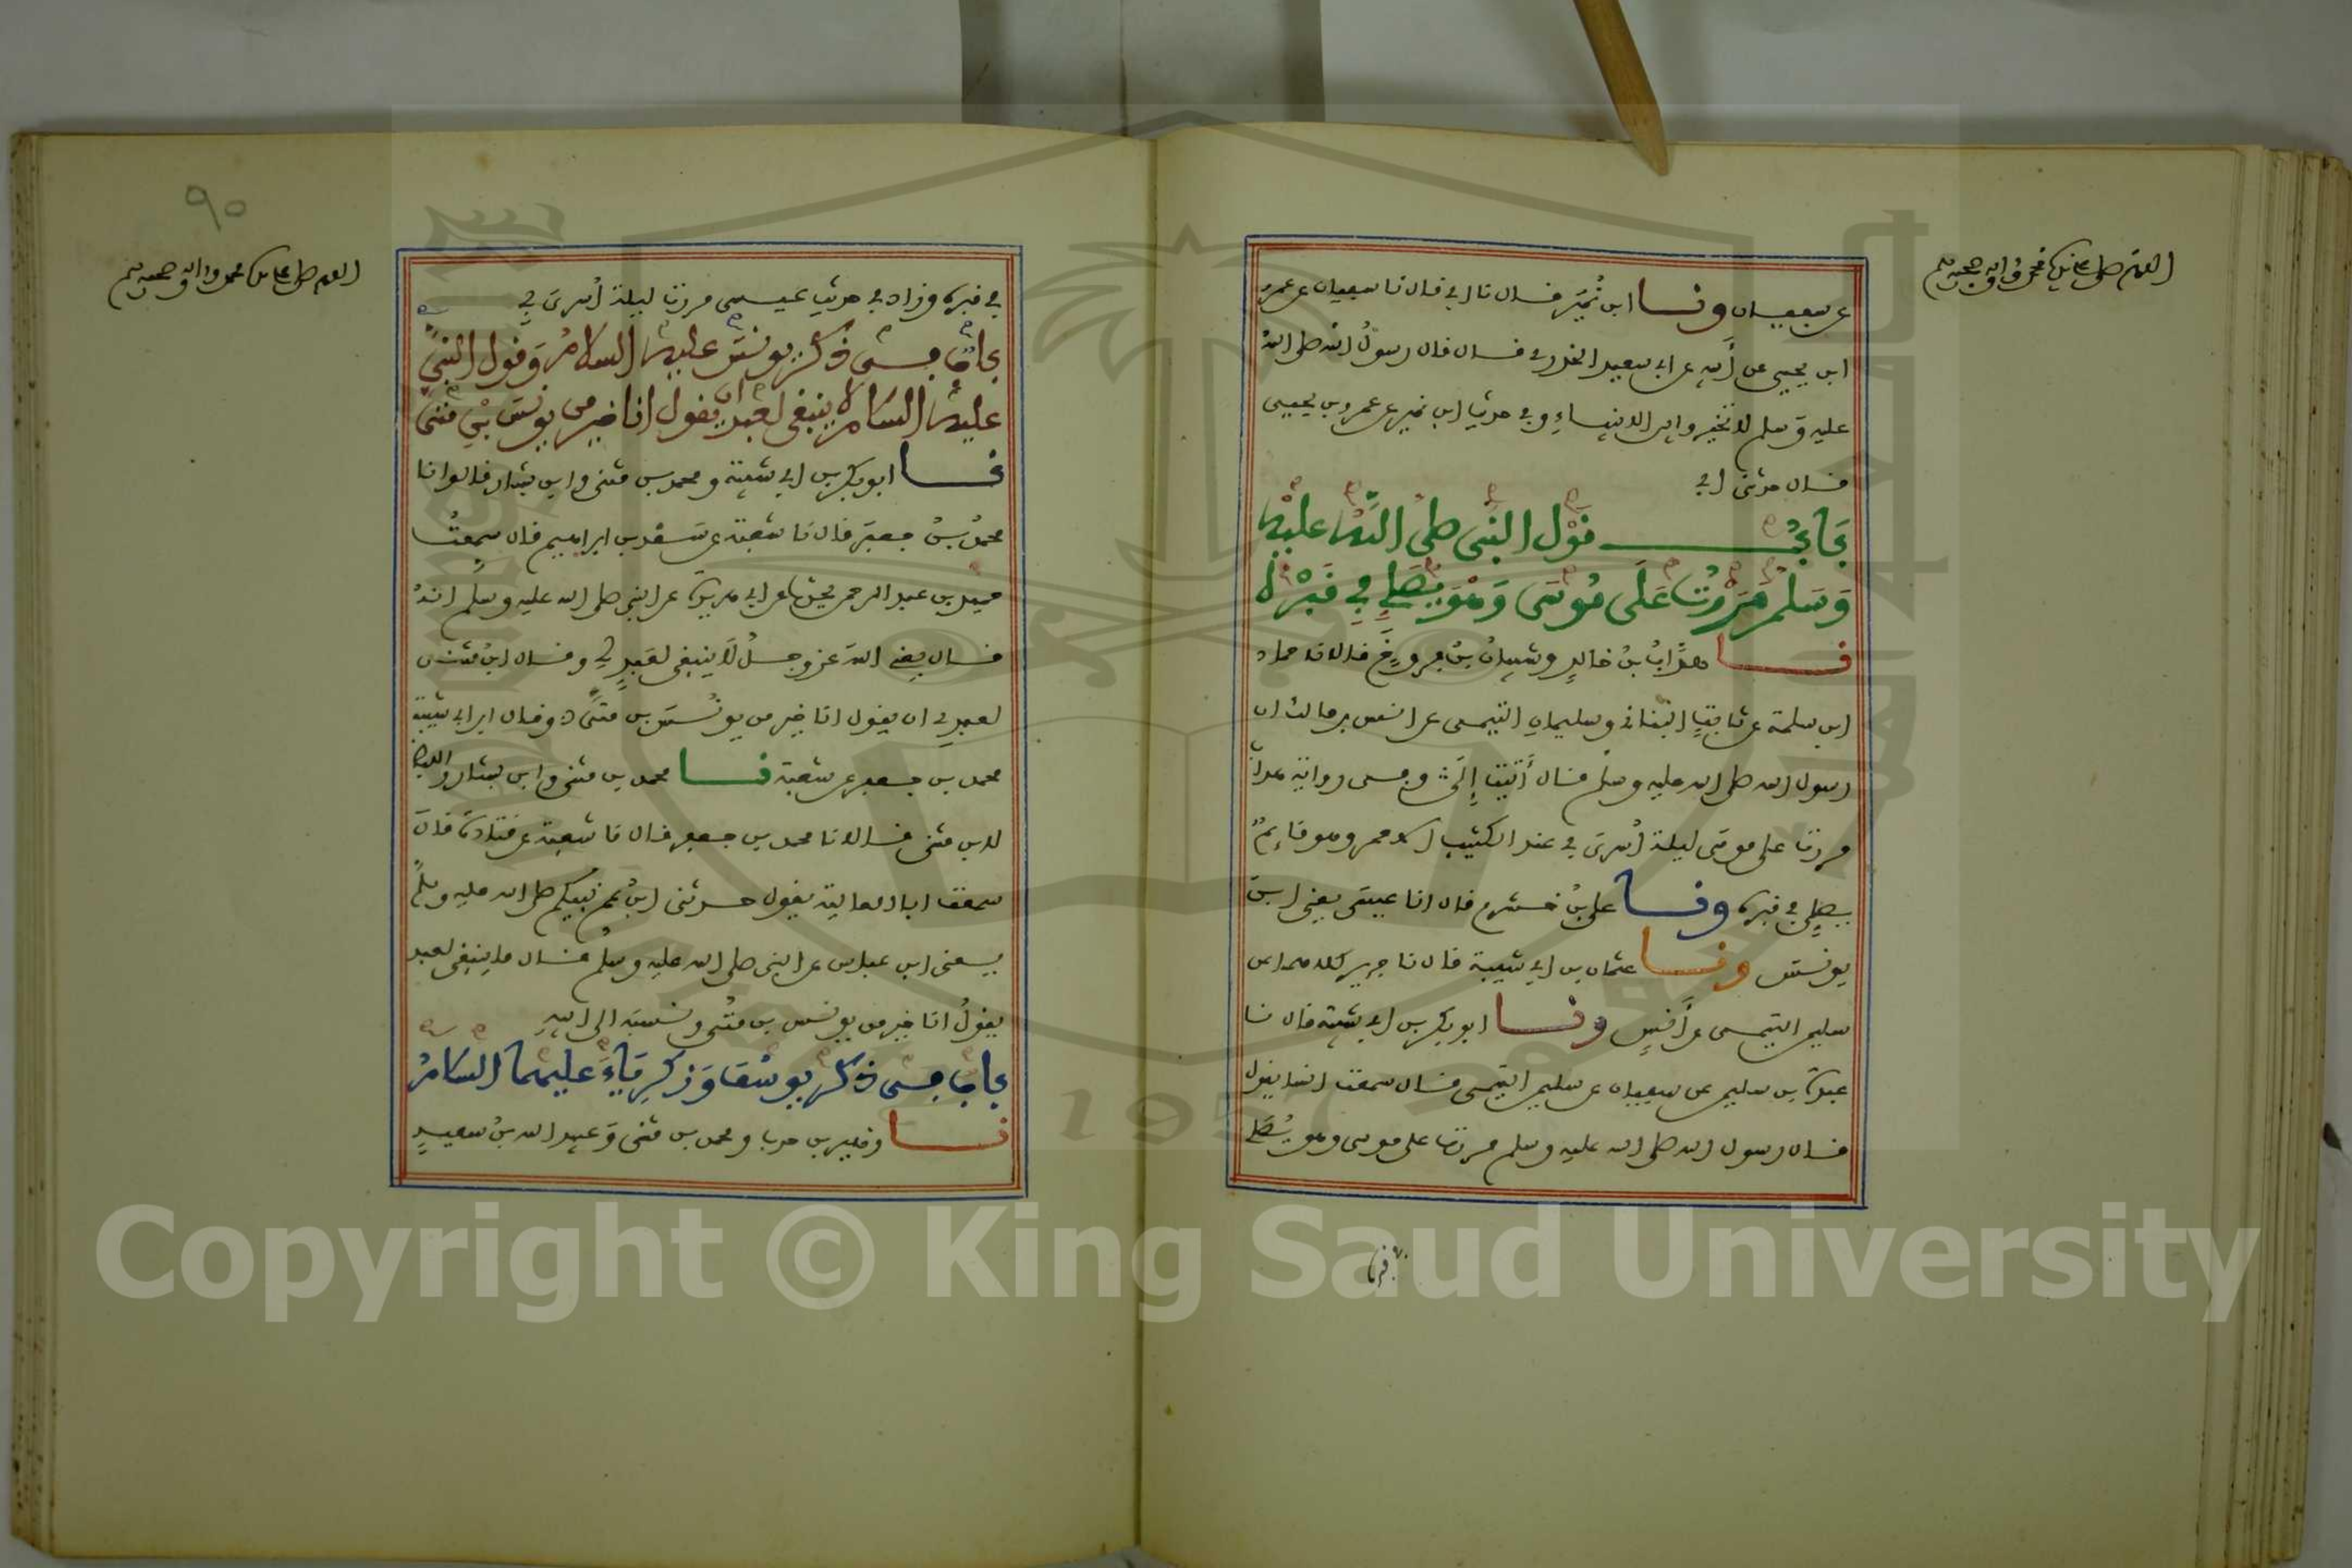 اللهم صل على سيدنا محمد واله وصحبه وسلم
عن سفيان ونا ابن نُمير قال نا ابي قال نا سفيان عن عمرو
ابن يحيى عن أبيه عن ابي سعيد الخدري قال قال رسول الله صلى الله
عليه وسلم لا تخيروا بين الانبياء وفي حديث ابن نمير عن عمرو بن يحيى
قال حدثني ابي
بَابُ قَوْل النبي صلى اللهُ عليه
وَسَلم مَرَرْتُ عَلَى مُوسَى وَهْوَ يُصَلِي فِي قَبْرِهِ
نا هدَّابُ بنُ خالدٍ وشيبانُ بنُ فروخَ قالا نا حماد
ابن سلمة عن ثابتٍ البناني وسليمان التيمي عن انس بن مالك ان
رسول الله صلى الله عليه وسلم قال أتيت وفي رواية هداب
مررت على موسى ليلة أُسرى بي عند الكثيب الاحمر وهو قائمٌ
يصلِي في قبره ونا علي بنُ خشرم قال انا عيسى يعني ابن
يونس ونا عثمان بن ابي شيبة قال نا جرير كلاهما عن
سليمن التيمي عن أنسٍ ونا ابو بكر بن ابي شيبة قال نا
عبدة بن سليمن عن سفيان عن سليمن التيمي قال سمعت انسا يقول
قال رسول الله صلى الله عليه وسلم مررت على موسى وهو يُصَلي
في قبره
٩٠
اللهم صل على سيدنا محمد واله وصحبه وسلم
في قبره وزاد في حديث عيسى مررت ليلة أُسرىَ بي
باب في ذكر يونسَ عليه السلامُ وَقول النبي
عليه السلام لا ينبغي لعبد ان يقول انا خير من يونسَ بْنِ متى
نا ابو بكر بن ابي شيبة ومحمد بن مثنى وابن بشار قالوا نا
محمدُ بنُ جعفر قال نا شعبة عن سَعْد بن ابراهيم قال سمعتُ
حميد بن عبد الرحمن يحدث عن ابي هريرة عن النبي صلى الله عليه وسلم انهُ
قال يعني الله عز وجلُ لَا ينبغي لعبدٍ لي وقال ابنُ مثنى
لعبدي ان يقول انا خير من يونُسَ بن متَّى وقال ابن ابي شيبة
محمد بن جعفر عن شعبة نا محمد بن مثنى وابن بشار واللفظ
لابن مثنى قالا نا محمد بن جعفر قال نا شعبة عن قتادة قال
سمعت ابا العالية يقول حدثني ابنُ عم نبيكم صلى الله عليه وسلم
يعني ابن عباس عن النبي صلى الله عليه وسلم قال ما ينبغي لعبد
يقولُ انا خير من يونس بن متَّى ونسبه الى ابيهِ
باب في ذكر يوسُف وَزكرِيَاءَ عليهما السلامُ
نا زهير بن حرب ومحمد بن مثنى وَعبيد الله بنُ سعيدٍ
Copyright © King Saud University
1957